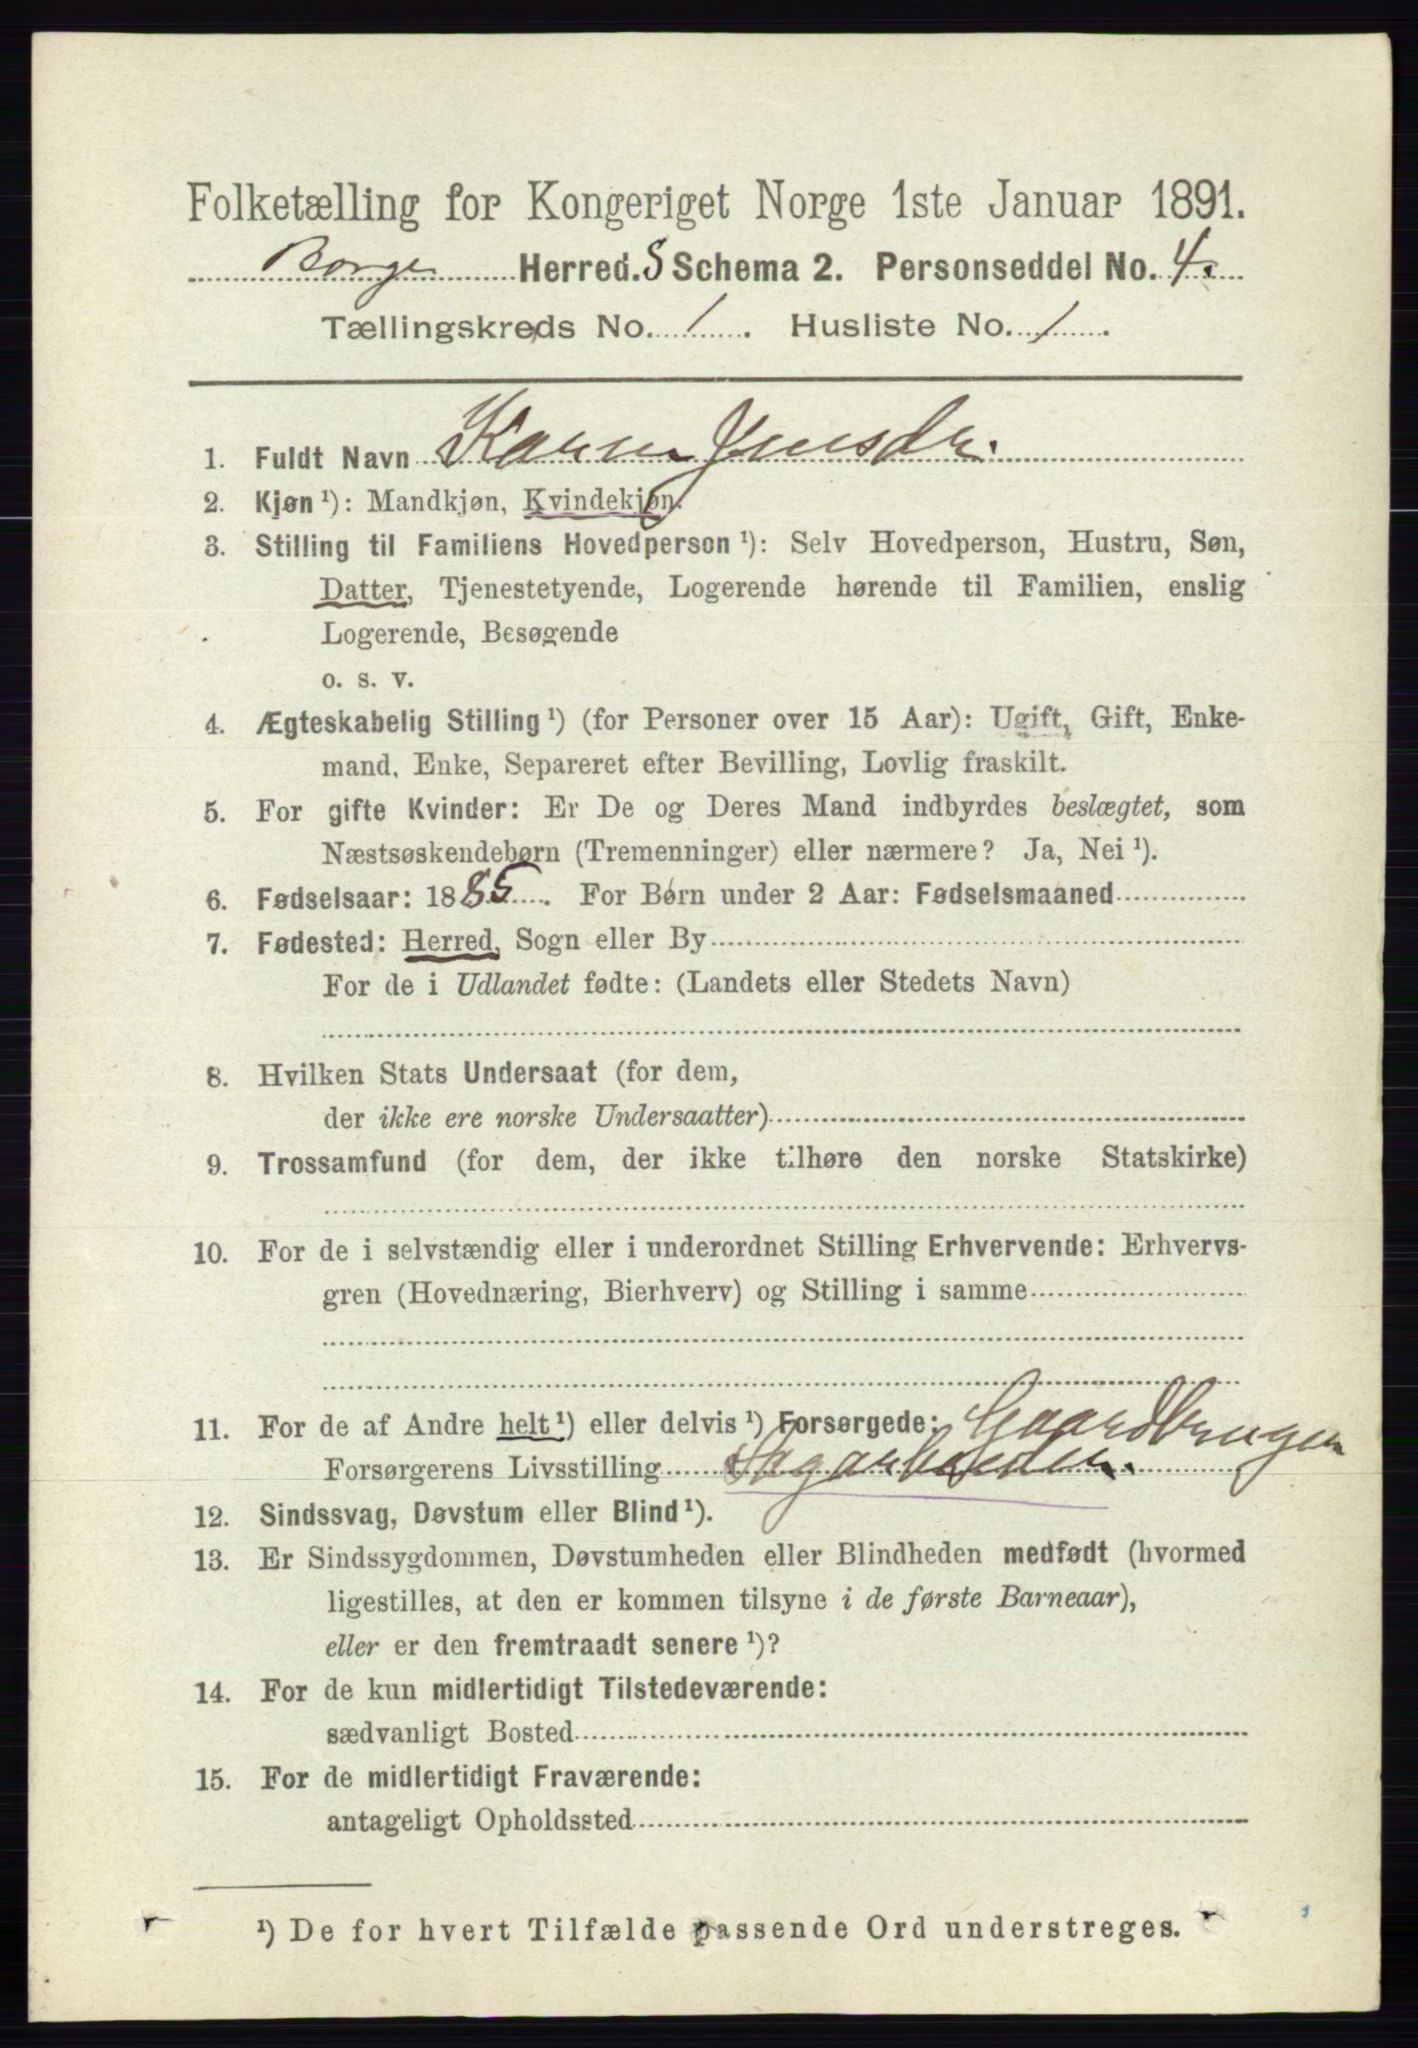 Folketælling for Kongeriget Norge 1ste Januar 1891.
Borge Herred. S Schema 2. Personseddel No. 4.
Tællingskreds No. 1. Husliste No. 1.
1. Fuldt Navn Karen Jensdr.
2. Kjøn ¹): Mandkjøn, Kvindekjøn.
3. Stilling til Familiens Hovedperson ¹): Selv Hovedperson, Hustru, Søn,
Datter, Tjenestetyende, Logerende hørende til Familien, enslig
Logerende, Besøgende
o. s. v.
4. Ægteskabelig Stilling ¹) (for Personer over 15 Aar): Ugift, Gift, Enke-
mand, Enke, Separeret efter Bevilling, Lovlig fraskilt.
5. For gifte Kvinder: Er De og Deres Mand indbyrdes beslægtet, som
Næstsøskendebørn (Tremenninger) eller nærmere? Ja, Nei ¹).
6. Fødselsaar: 1885. For Børn under 2 Aar: Fødselsmaaned
7. Fødested: Herred, Sogn eller By
For de i Udlandet fødte: (Landets eller Stedets Navn)
8. Hvilken Stats Undersaat (for dem,
der ikke ere norske Undersaatter)
9. Trossamfund (for dem, der ikke tilhøre den norske Statskirke)
10. For de i selvstændig eller i underordnet Stilling Erhvervende: Erhvervs-
gren (Hovednæring, Bierhverv) og Stilling i samme
11. For de af Andre helt ¹) eller delvis ¹) Forsørgede: Gaardbruger
Forsørgerens Livsstilling Sagarbeider.
12. Sindssvag, Døvstum eller Blind ¹).
13. Er Sindssygdommen, Døvstumheden eller Blindheden medfødt (hvormed
ligestilles, at den er kommen tilsyne i de første Barneaar),
eller er den fremtraadt senere ¹)?
14. For de kun midlertidigt Tilstedeværende:
sædvanligt Bosted
15. For de midlertidigt Fraværende:
antageligt Opholdssted
¹) De for hvert Tilfælde passende Ord understreges.